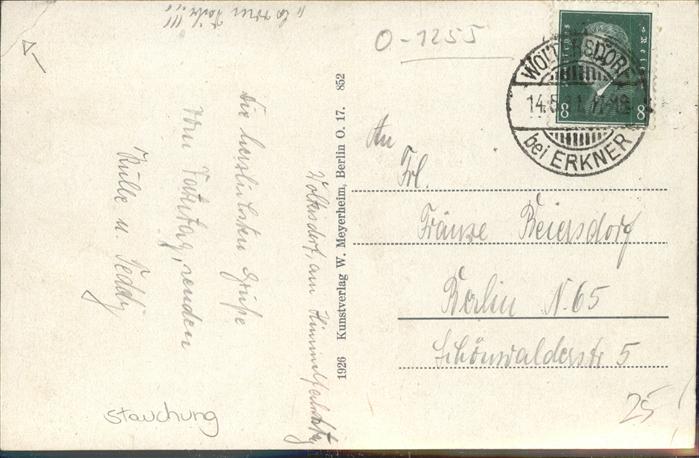 O-1255
WOLTERSDORF
14.5. 17-18
bei ERKNER
8 8
"es war schön"!!!
Woltersdorf, am Himmelfahrtstag
Die herzlichsten Grüße
vom Vatertag, senden
Kulle u. Teddy
1926 Kunstverlag W. Meyerheim, Berlin O. 17. 852
An
Frl.
Fränze Beiersdorf
Berlin N. 65
Schönwalderstr 5
stauchung
25